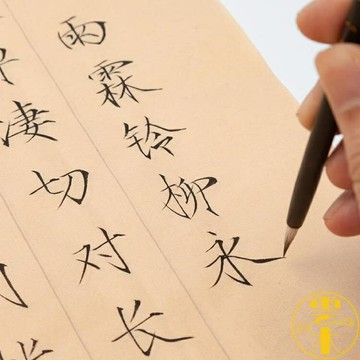 雨霖铃柳永
凄切对长